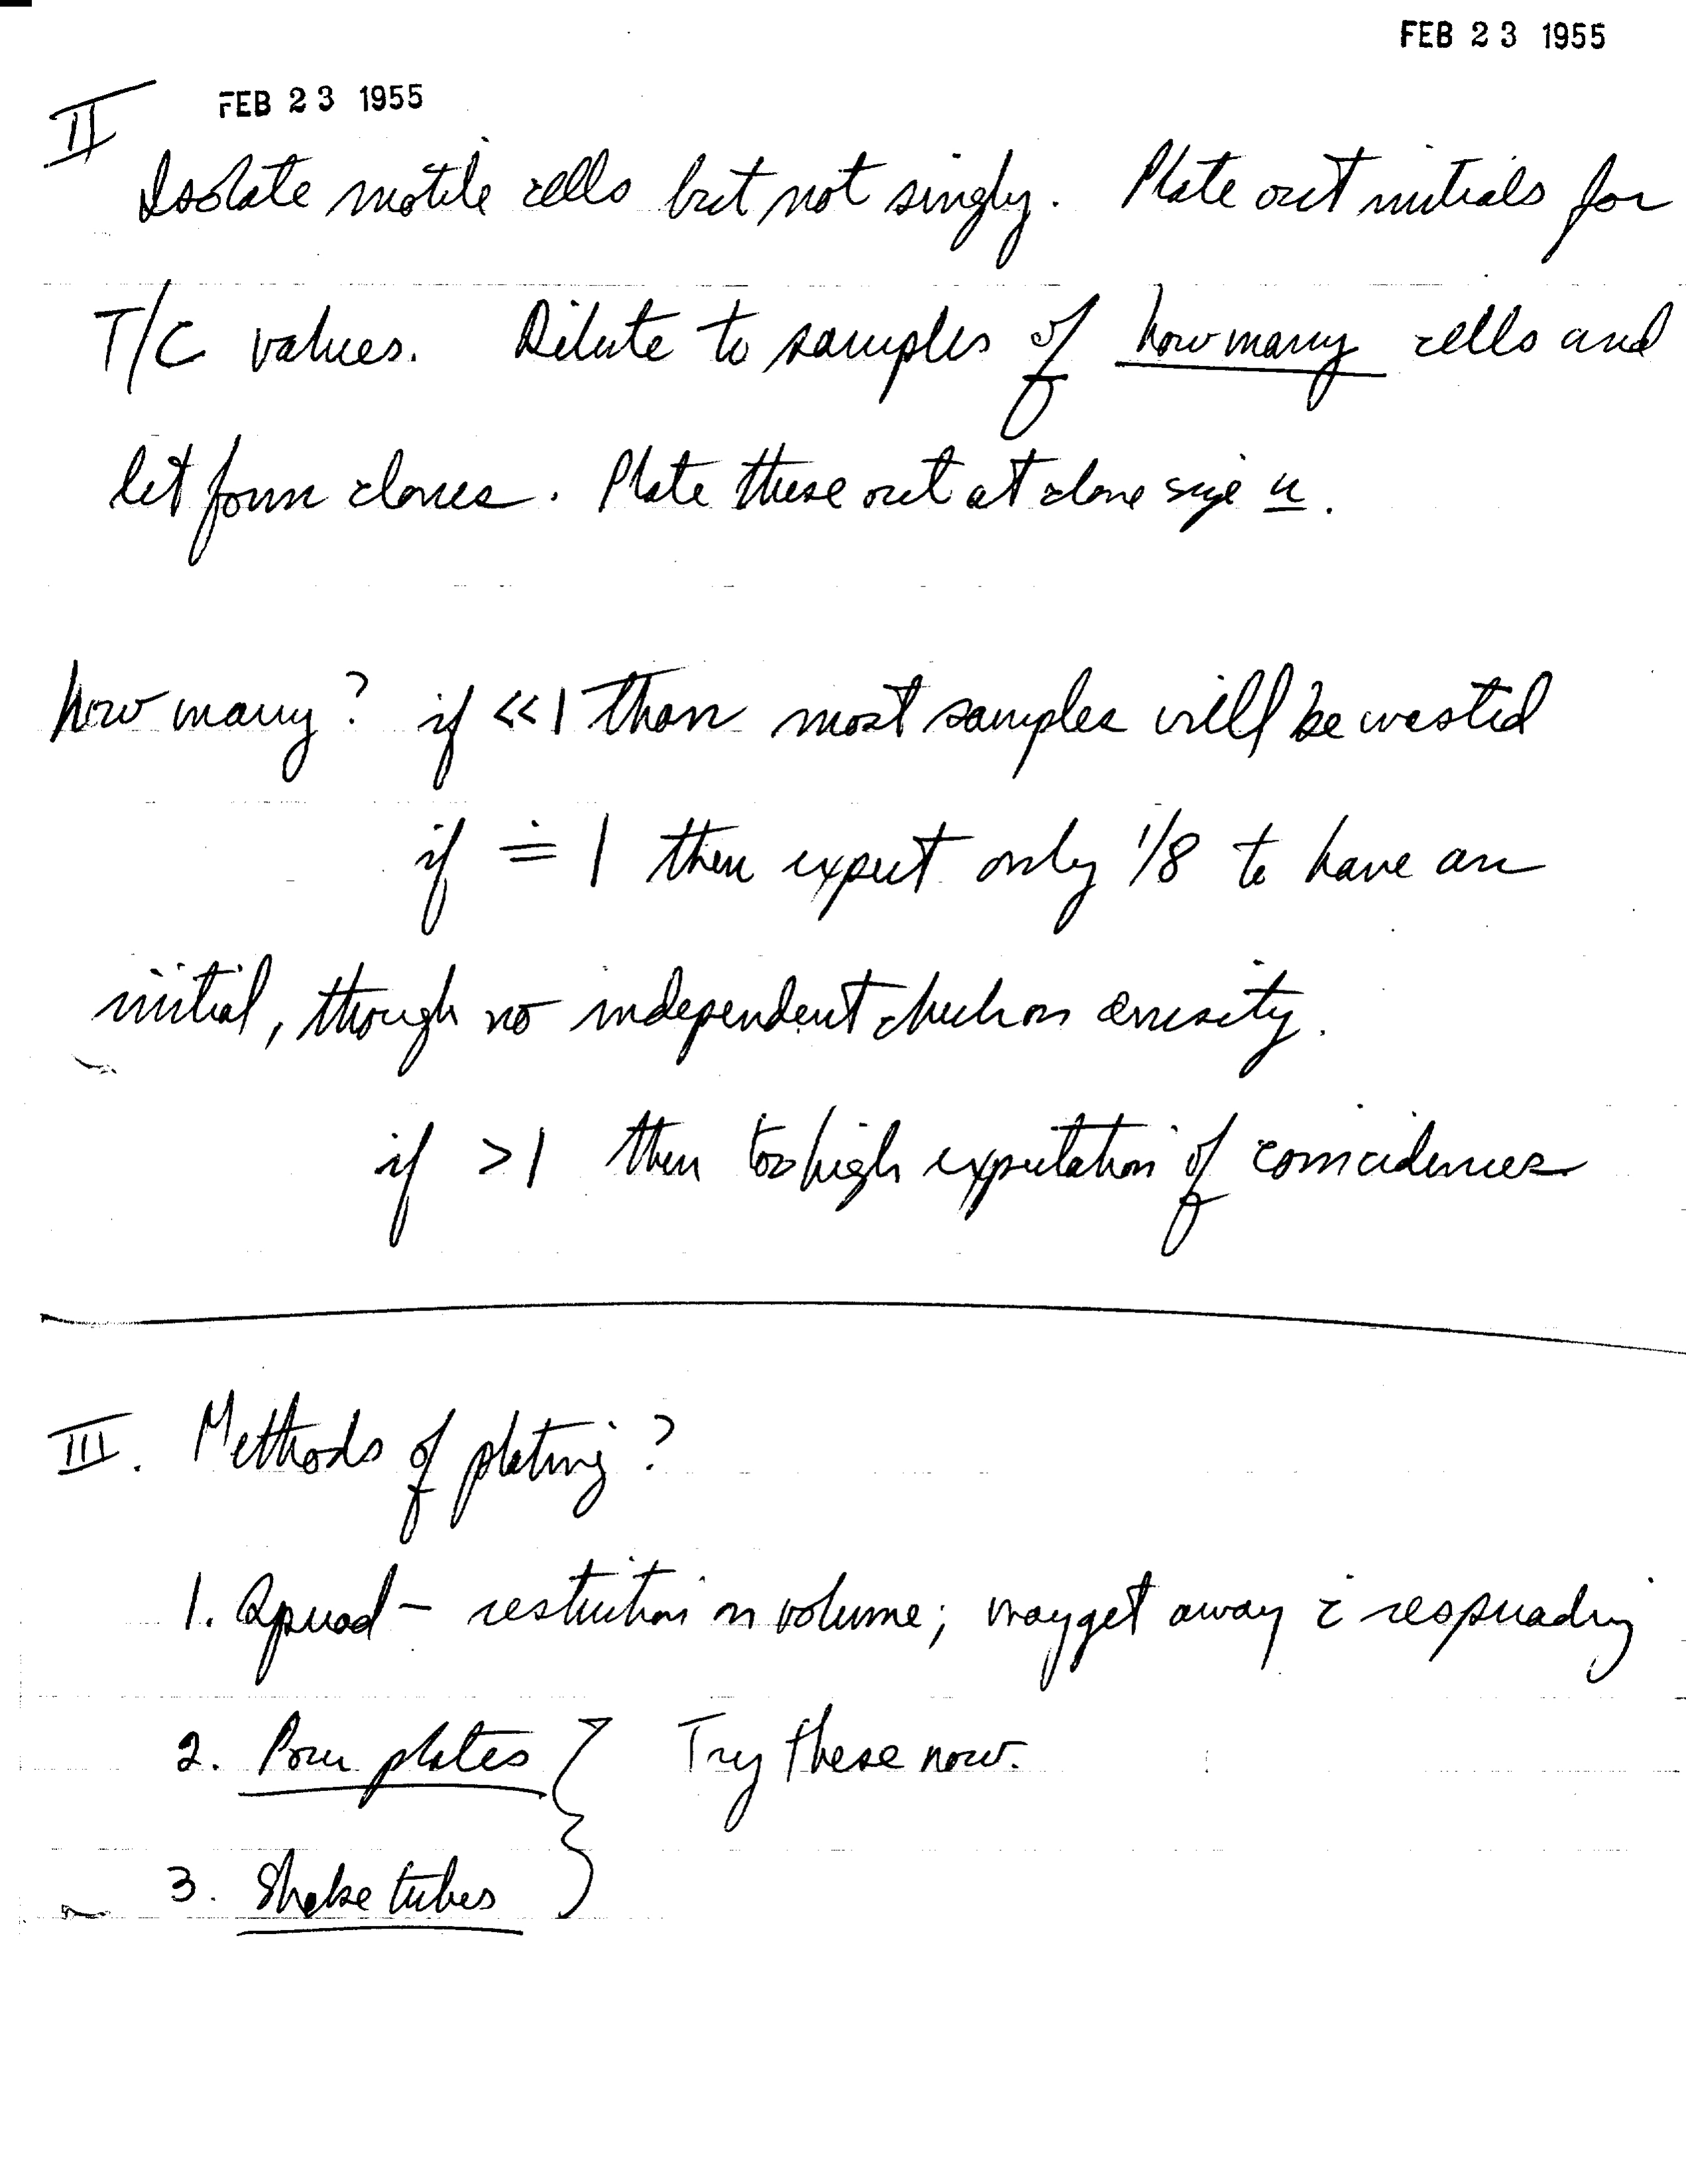 FEB 23 1955
II FEB 23 1955
Isolate motile cells but not singly. Plate out initials for
T/C values. Dilute to samples of how many cells and
let form clones. Plate these out at clone size n.
how many? if <<1 then most samples will be wasted
if ≐ 1 then expect only 1/8 to have an
initial, though no independent check on
if >1 then too high expectation of coincidences
III. Methods of plating?
1. Spread – restriction on volume; may get away c̄ respreading
2. Pour plates } Try these now.
3. Shake tubes